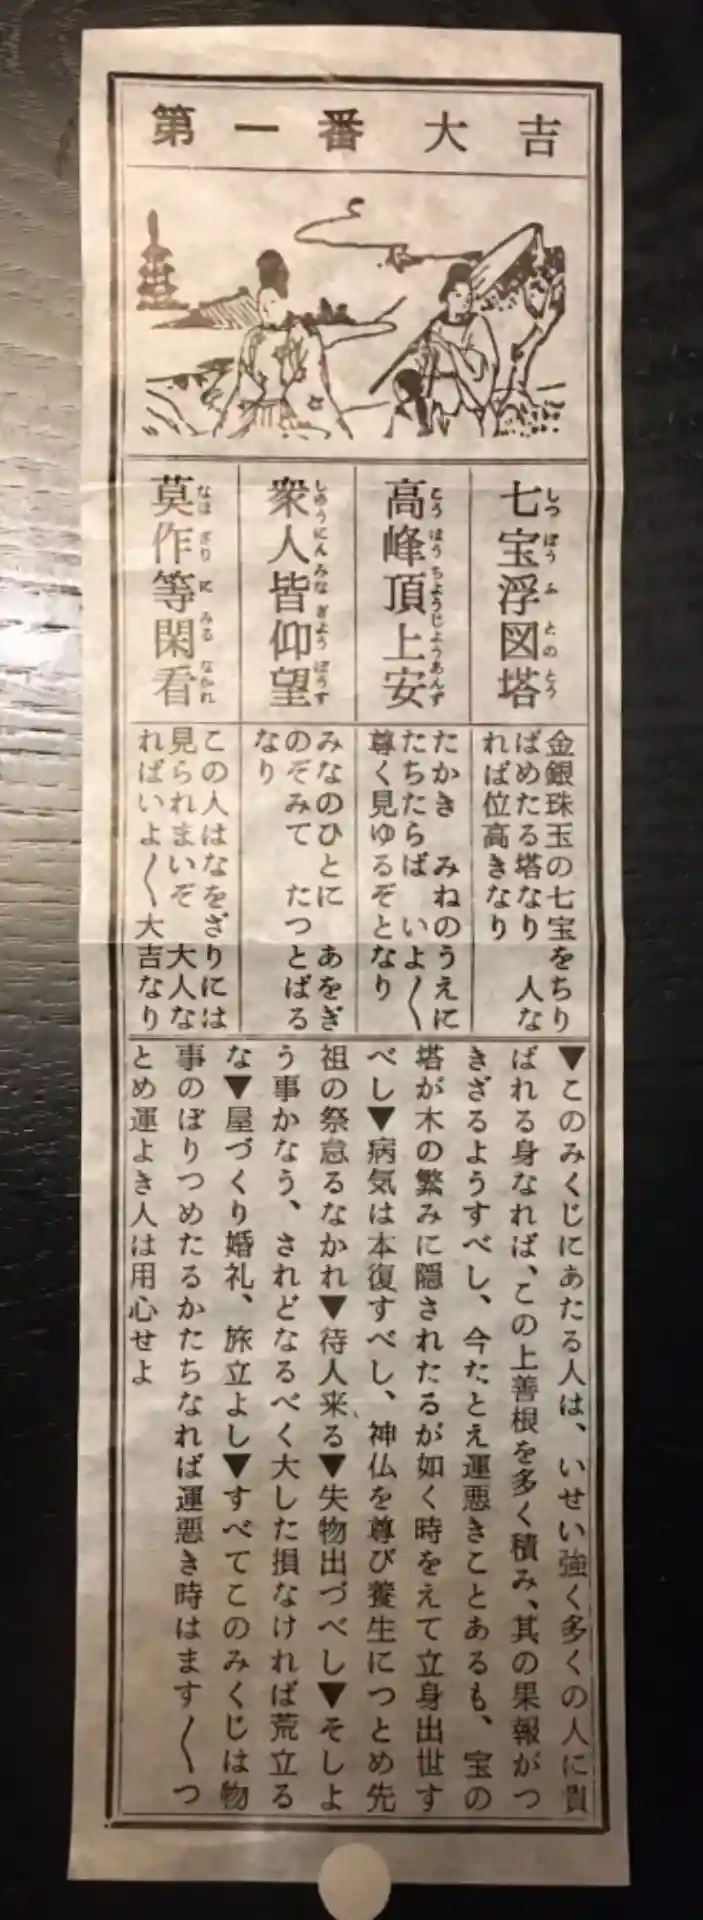 第一番大吉
七宝浮図塔
しつぽうふとのとう
高峰頂上安
こうほうちようじようあんず
衆人皆仰望
しゆうにんみなぎようぼうす
莫作等閑看
なほざりにみるなかれ
金銀珠玉の七宝をちり
ばめたる塔なり 人な
れば位高きなり
たかき みねのうえに
たちたらば いよ〳〵
尊く見ゆるぞとなり
みなのひとに あをぎ
のぞみて たつとばる
なり
この人はなをざりには
見られまいぞ 大人な
ればいよ〳〵大吉なり
▼このみくじにあたる人は、いせい強く多くの人に貴
ばれる身なれば、この上善根を多く積み、其の果報がつ
きざるようすべし、今たとえ運悪きことあるも、宝の
塔が木の繁みに隠されたるが如く時をえて立身出世す
べし▼病気は本復すべし、神仏を尊び養生につとめ先
祖の祭怠るなかれ▼待人来る▼失物出づべし▼そしよ
う事かなう、されどなるべく大した損なければ荒立る
な▼屋づくり婚礼、旅立よし▼すべてこのみくじは物
事のぼりつめたるかたちなれば運悪き時はます〳〵つ
とめ運よき人は用心せよ